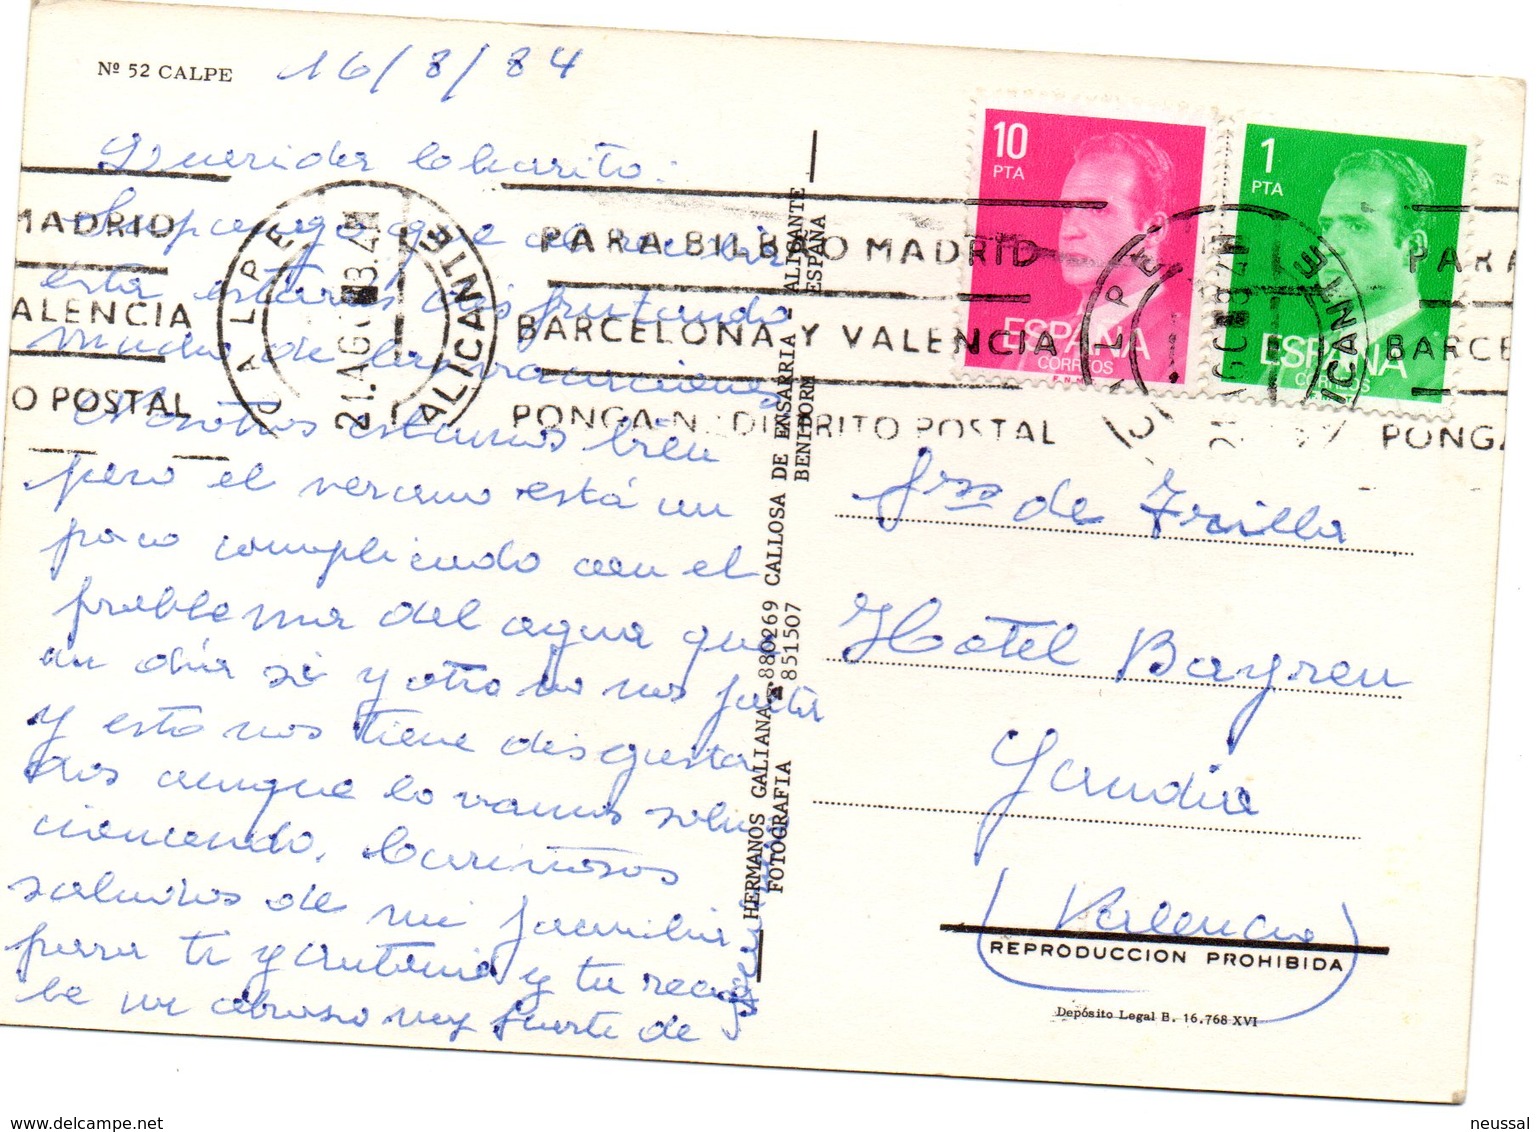 Nº 52 CALPE
16/8/84
Querida Charito:
Supongo que al recibir
esta estarás disfrutando
mucho de las vacaciones
Nosotros estamos bien
pero el verano está un
poco complicado con el
problema del agua que
un día si y otro no nos falta
y esto nos tiene disgusta
dos aunque lo vamos solu
cionando. Cariñosos
saludos de mi familia
para ti y Antonia y tu reci
be un abrazo muy fuerte de
HERMANOS GALIANA - ☎ 880269 CALLOSA DE ENSARRIA - ALICANTE
FOTOGRAFIA ☎ 851507 BENIDORM ESPAÑA
10
PTA
ESPAÑA
CORREOS
F.N.M.T.
1
PTA
ESPAÑA
CORREOS
CALPE
ALICANTE
21.AGO
MADRIO
VALENCIA
O POSTAL
PARA BILBAO MADRID
BARCELONA Y VALENCIA
PONGA N. DISTRITO POSTAL
CALPE
ALICANTE
PARA
BARCE
PONGA
Srss de Trilla
Hotel Bayren
Gandia
(Valencia)
REPRODUCCION PROHIBIDA
Depósito Legal B. 16.768 XVI
www.delcampe.net
neussal